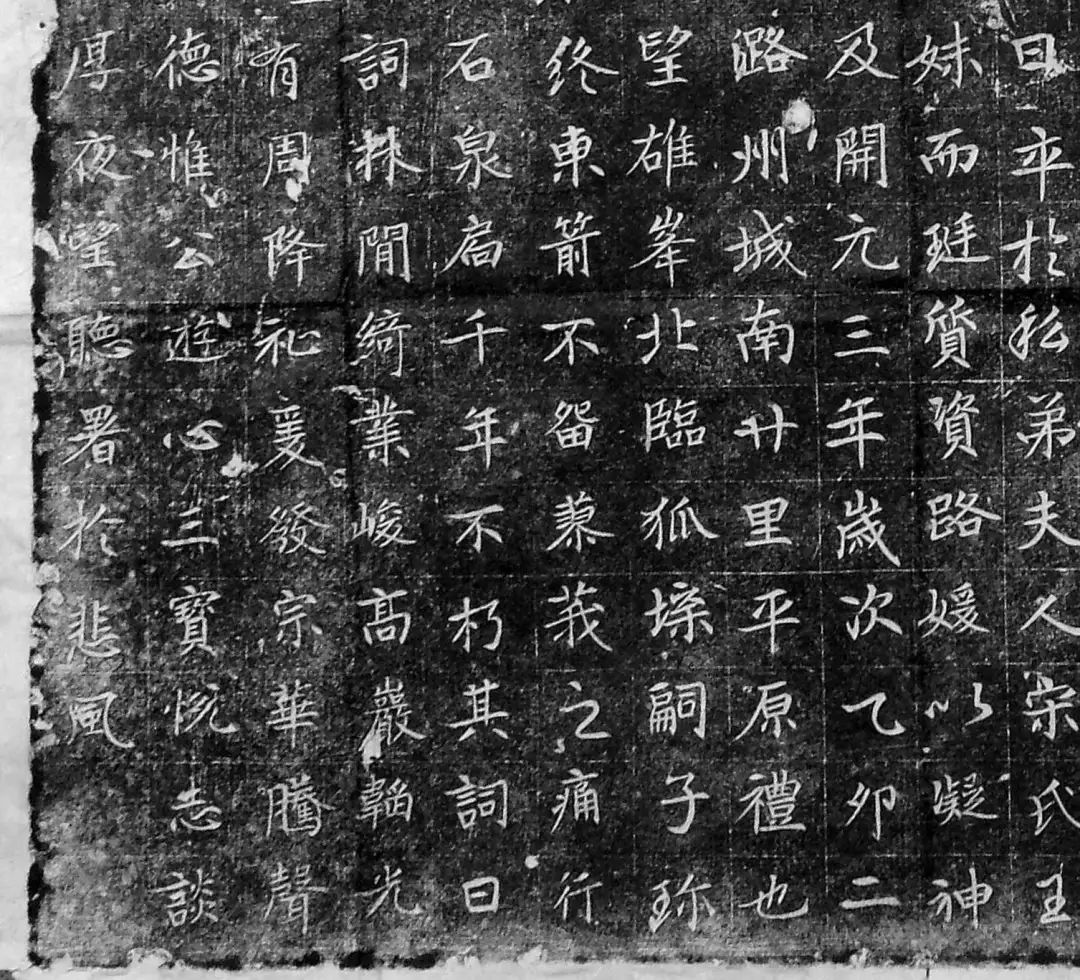 日卒於私弟夫人宋氏王
妹而珽質資路媛以凝神
及開元三年歲次乙卯二
潞州城南廿里平原禮也
望雄峯北臨狐墚嗣子珎
終東箭不留蓼莪之痛行
石泉扃千年不朽其詞曰
詞林閒綺業峻高巖韜光
有周降祉爰發宗華騰聲
德惟公遊心三寶悅志談
厚夜望聽署於悲風